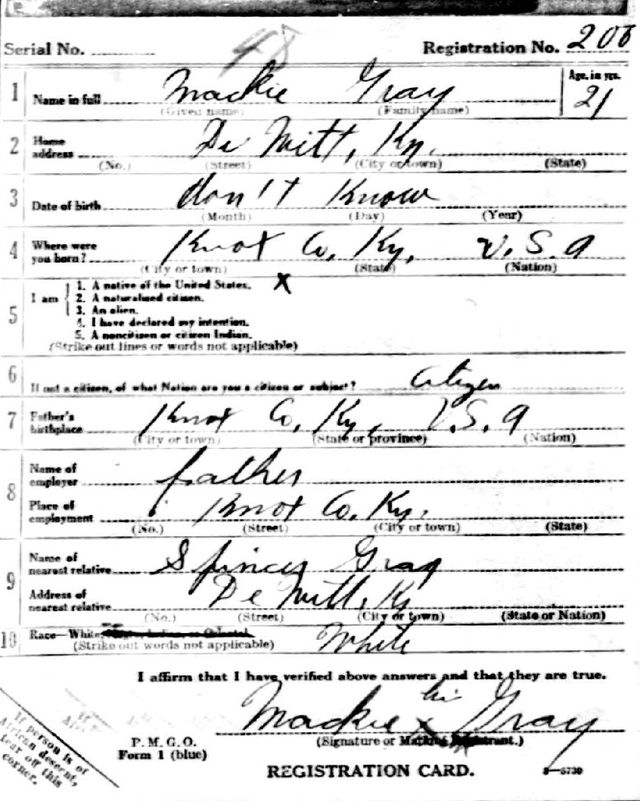 Serial No. 48 Registration No. 208
1 Name in full Mackie Gray Age, in yrs. 21
(Given name) (Family name)
2 Home address De Witt, Ky.
(No.) (Street) (City or town) (State)
3 Date of birth don't Know
(Month) (Day) (Year)
4 Where were you born? Knox Co, Ky, U.S.A
(City or town) (State) (Nation)
5 I am
1. A native of the United States. X
2. A naturalized citizen.
3. An alien.
4. I have declared my intention.
5. A noncitizen or citizen Indian.
(Strike out lines or words not applicable)
6 If not a citizen, of what Nation are you a citizen or subject? Citizen
7 Father's birthplace Knox Co, Ky, U.S.A
(City or town) (State or province) (Nation)
8 Name of employer father
Place of employment Knox Co, Ky.
(No.) (Street) (City or town) (State)
9 Name of nearest relative Gray
Address of nearest relative De Witt, Ky
(No.) (Street) (City or town) (State or Nation)
10 Race—White, White
(Strike out words not applicable)
I affirm that I have verified above answers and that they are true.
his
Mackie x Gray
(Signature or
P. M. G. O.
Form 1 (blue)
REGISTRATION CARD.
3—5730
If person is of
African descent,
tear off this
corner.